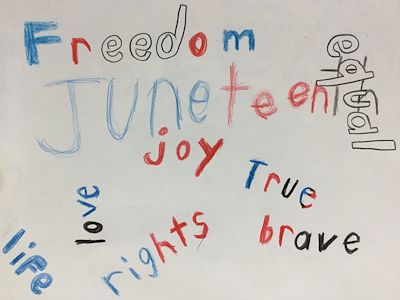 Freedom
JUneteenTh
equal
joy
love
True
brave
rights
life